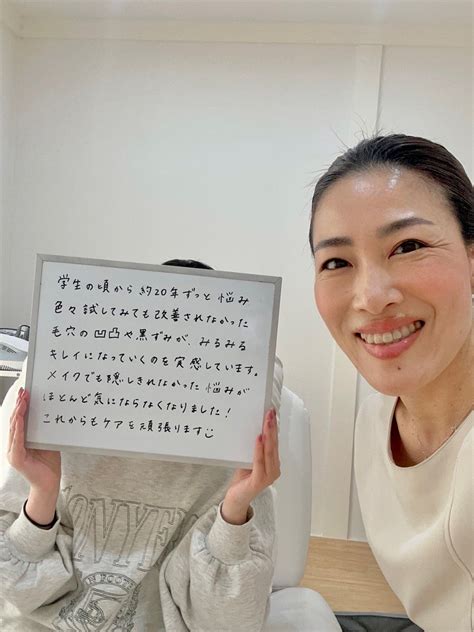 学生の頃から約20年ずっと悩み
色々試してみても改善されなかった
毛穴の凹凸や黒ずみが、みるみる
キレイになっていくのを実感しています。
メイクでも隠しきれなかった悩みが
ほとんど気にならなくなりました！
これからもケアを頑張ります